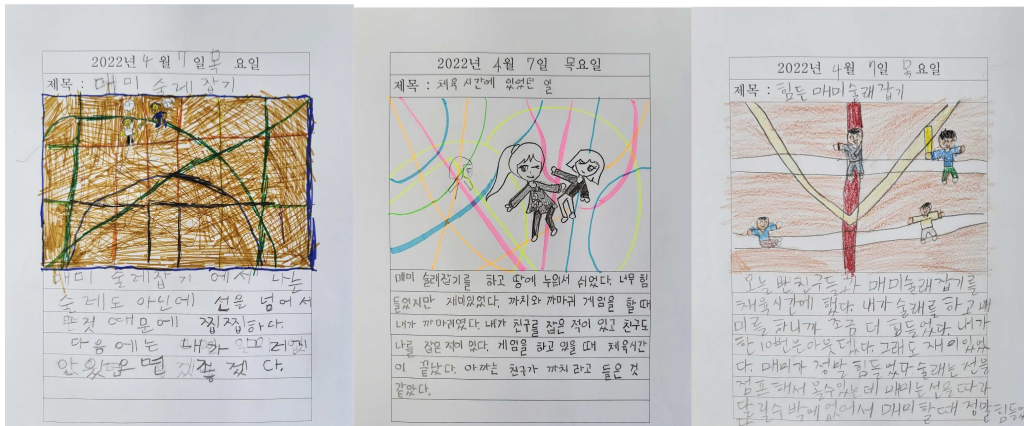 2022년 4월 7일 목 요일
제목 : 매미 술레잡기
매미 술레잡기 에서 나는
술레도 아닌데 선을 넘어서
뛴것 때문에 찝찝하다.
다음에는 내가
안 했으면 좋겠다.
2022년 4월 7일 목요일
제목 : 체육시간에 있었던 일
매미 술래잡기를 하고 땅에 누워서 쉬었다. 너무 힘
들었지만 재미있었다. 까치와 까마귀 게임을 할 때
내가 까마귀였다. 내가 친구를 잡은 적이 있고 친구도
나를 잡은 적이 있다. 게임을 하고 있을 때 체육시간
이 끝났다. 아까는 친구가 까치라고 들은 것
같았다.
2022년 4월 7일 목요일
제목 : 힘든 매미술래잡기
오늘 반친구들과 매미술래잡기를
체육시간에 했다. 내가 술래를 하고 매
미를 하니까 조금 더 힘들었다. 내가
한 10번은 아웃됐다. 그래도 재미있었
다. 매미가 정말 힘들었다. 술래는 선을
점프해서 올수있는데 매미는 선을 따라
달릴수밖에 없어서 매미할때 정말 힘들었